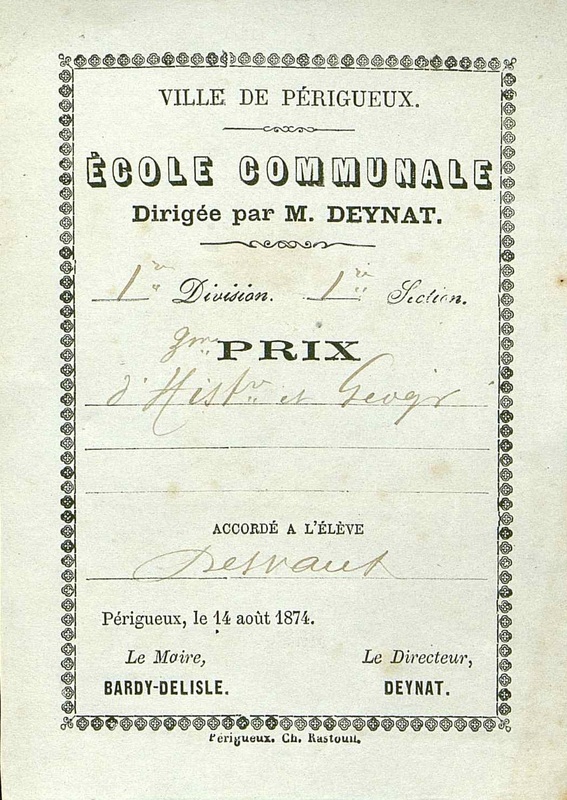 VILLE DE PÉRIGUEUX.
ÉCOLE COMMUNALE
Dirigée par M. DEYNAT.
1re Division. 1re Section.
2me PRIX
d'Histre et Géogr
ACCORDÉ A L'ÉLÈVE
Périgueux, le 14 août 1874.
Le Maire, Le Directeur,
BARDY-DELISLE. DEYNAT.
Périgueux. Ch. Rastouil.